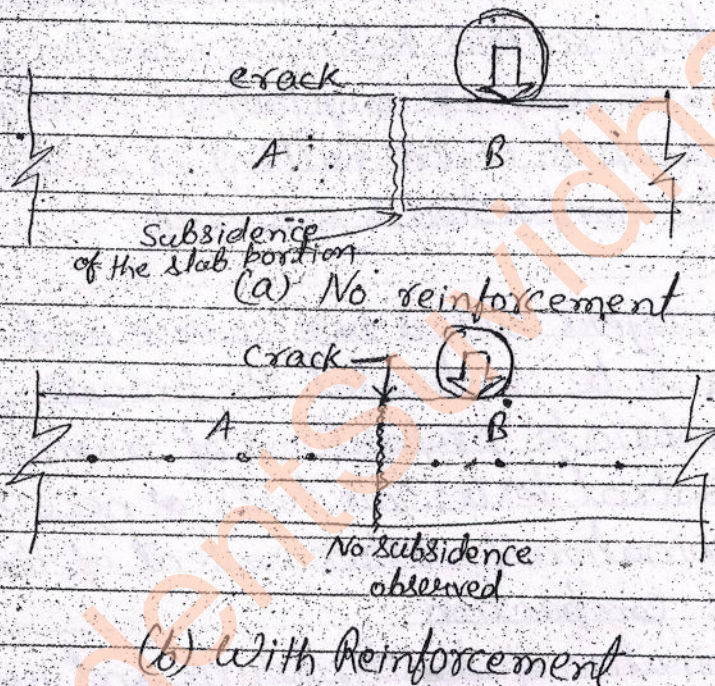 crack
A
B
Subsidence
of the slab portion
(a) No reinforcement
Crack
A
B
No subsidence
observed
(b) With Reinforcement